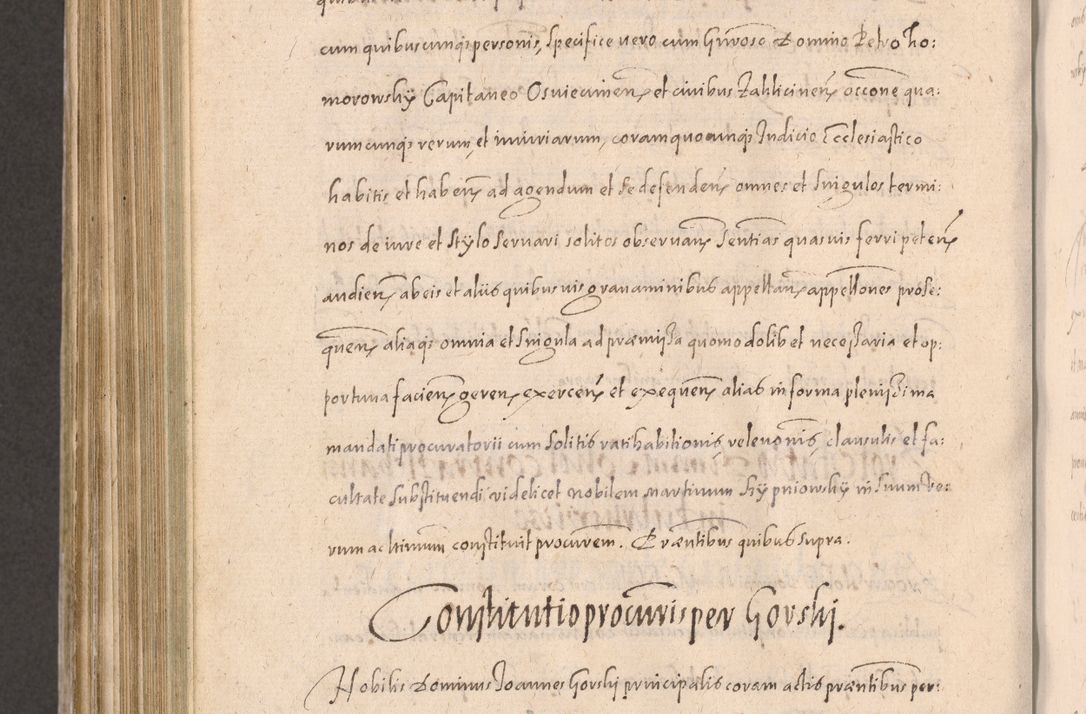 cum quibuscunq; personis, specifice vero cum Gnroso Domino Petro Ko:
morowsky Capitaneo Osviecimen et civibus Zathicinen occone qua:
rumcunq; rerum, et iniuriarum, coram quocunq; Iudicio Ecclesiastico
habitis et haben ad agendum et se defenden omnes et singulos termi:
nos de iure et stylo servari solitos observan sentias quasvis ferri peten
audien ab eis et aliis quibusvis gravaminibus appellan appellones prose:
quen aliaq; omnia et singula ad præmissa quomodolibet necessaria et op:
portuna facien geren exercen et exequen alias in forma plenissima
mandati procuratorii cum solitis ratihabitionis, relevonis, clausulis et fa:
cultate substituendi videlicet nobilem Martinum Skypniowsky in suum ve:
rum ac ltimum constituit procurem. Præntibus quibus supra.
Constitutio procuris per Gorski.
Nobilis Dominus Ioannes Gorski principalis coram actis præntibus per: